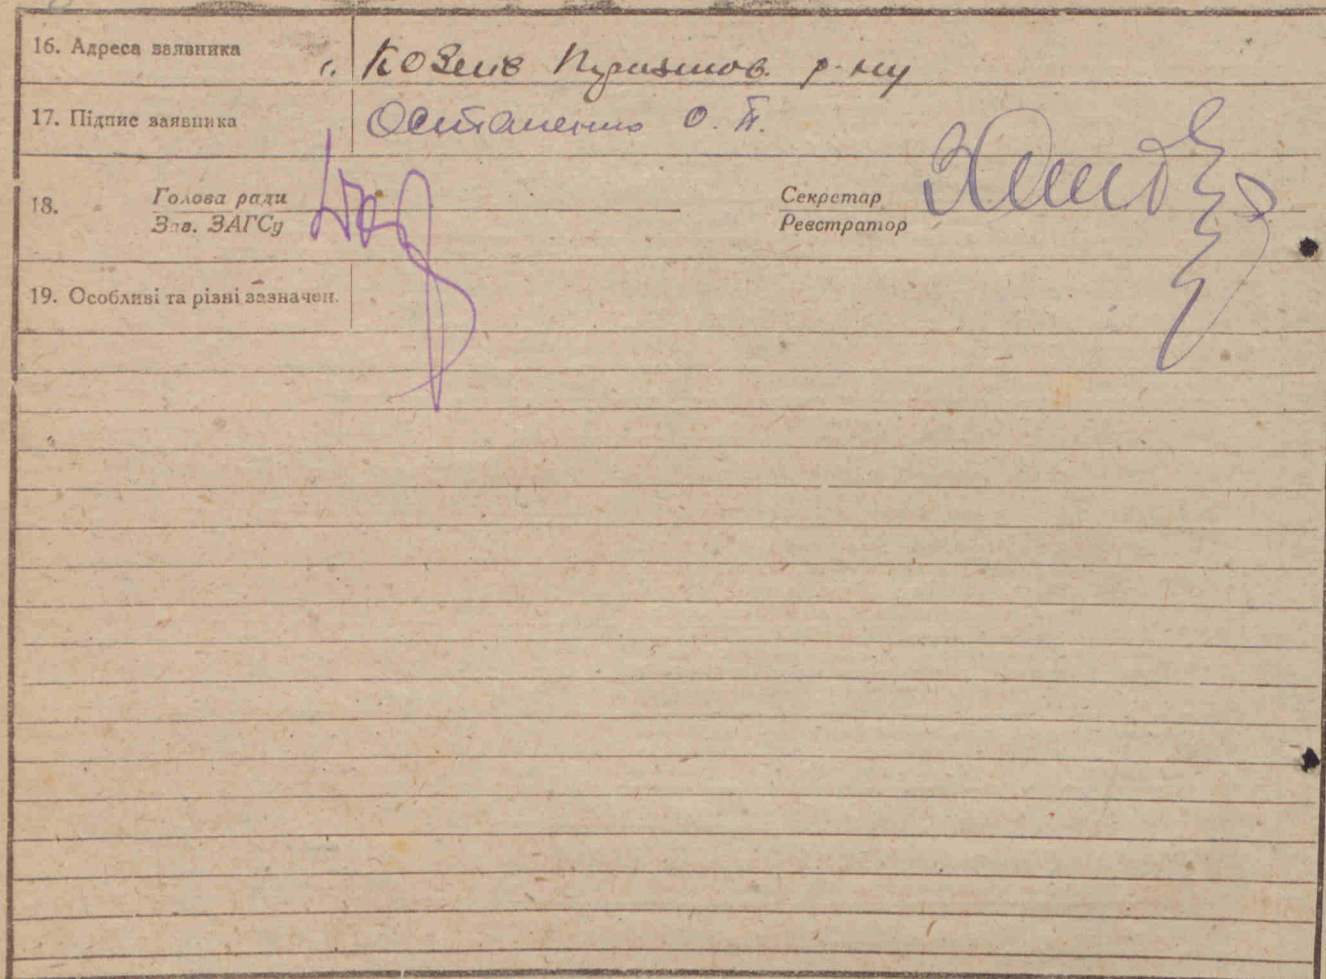 16. Адреса заявника с. Козлів р-ну
17. Підпис заявника Остапенко О. П.
18. Голова ради Секретар
Зав. ЗАГСу Реєстратор
19. Особливі та різні зазначен.